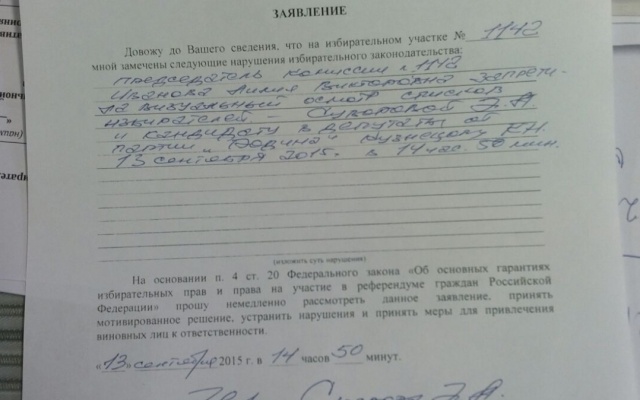 ЗАЯВЛЕНИЕ
Довожу до Вашего сведения, что на избирательном участке № 1142
мной замечены следующие нарушения избирательного законодательства:
Председатель комиссии № 1142
Иванова Лилия Викторовна запрети-
ла визуальный осмотр списков
избирателей – Суворовой Э.А.
и кандидату в депутаты от
партии "Родина" Кузнецову Р.Н.
13 сентября 2015г. в 14 час. 50 мин.
(изложить суть нарушения)
На основании п. 4 ст. 20 Федерального закона «Об основных гарантиях
избирательных прав и права на участие в референдуме граждан Российской
Федерации» прошу немедленно рассмотреть данное заявление, принять
мотивированное решение, устранить нарушения и принять меры для привлечения
виновных лиц к ответственности.
«13» сентября 2015 г. в 14 часов 50 минут.